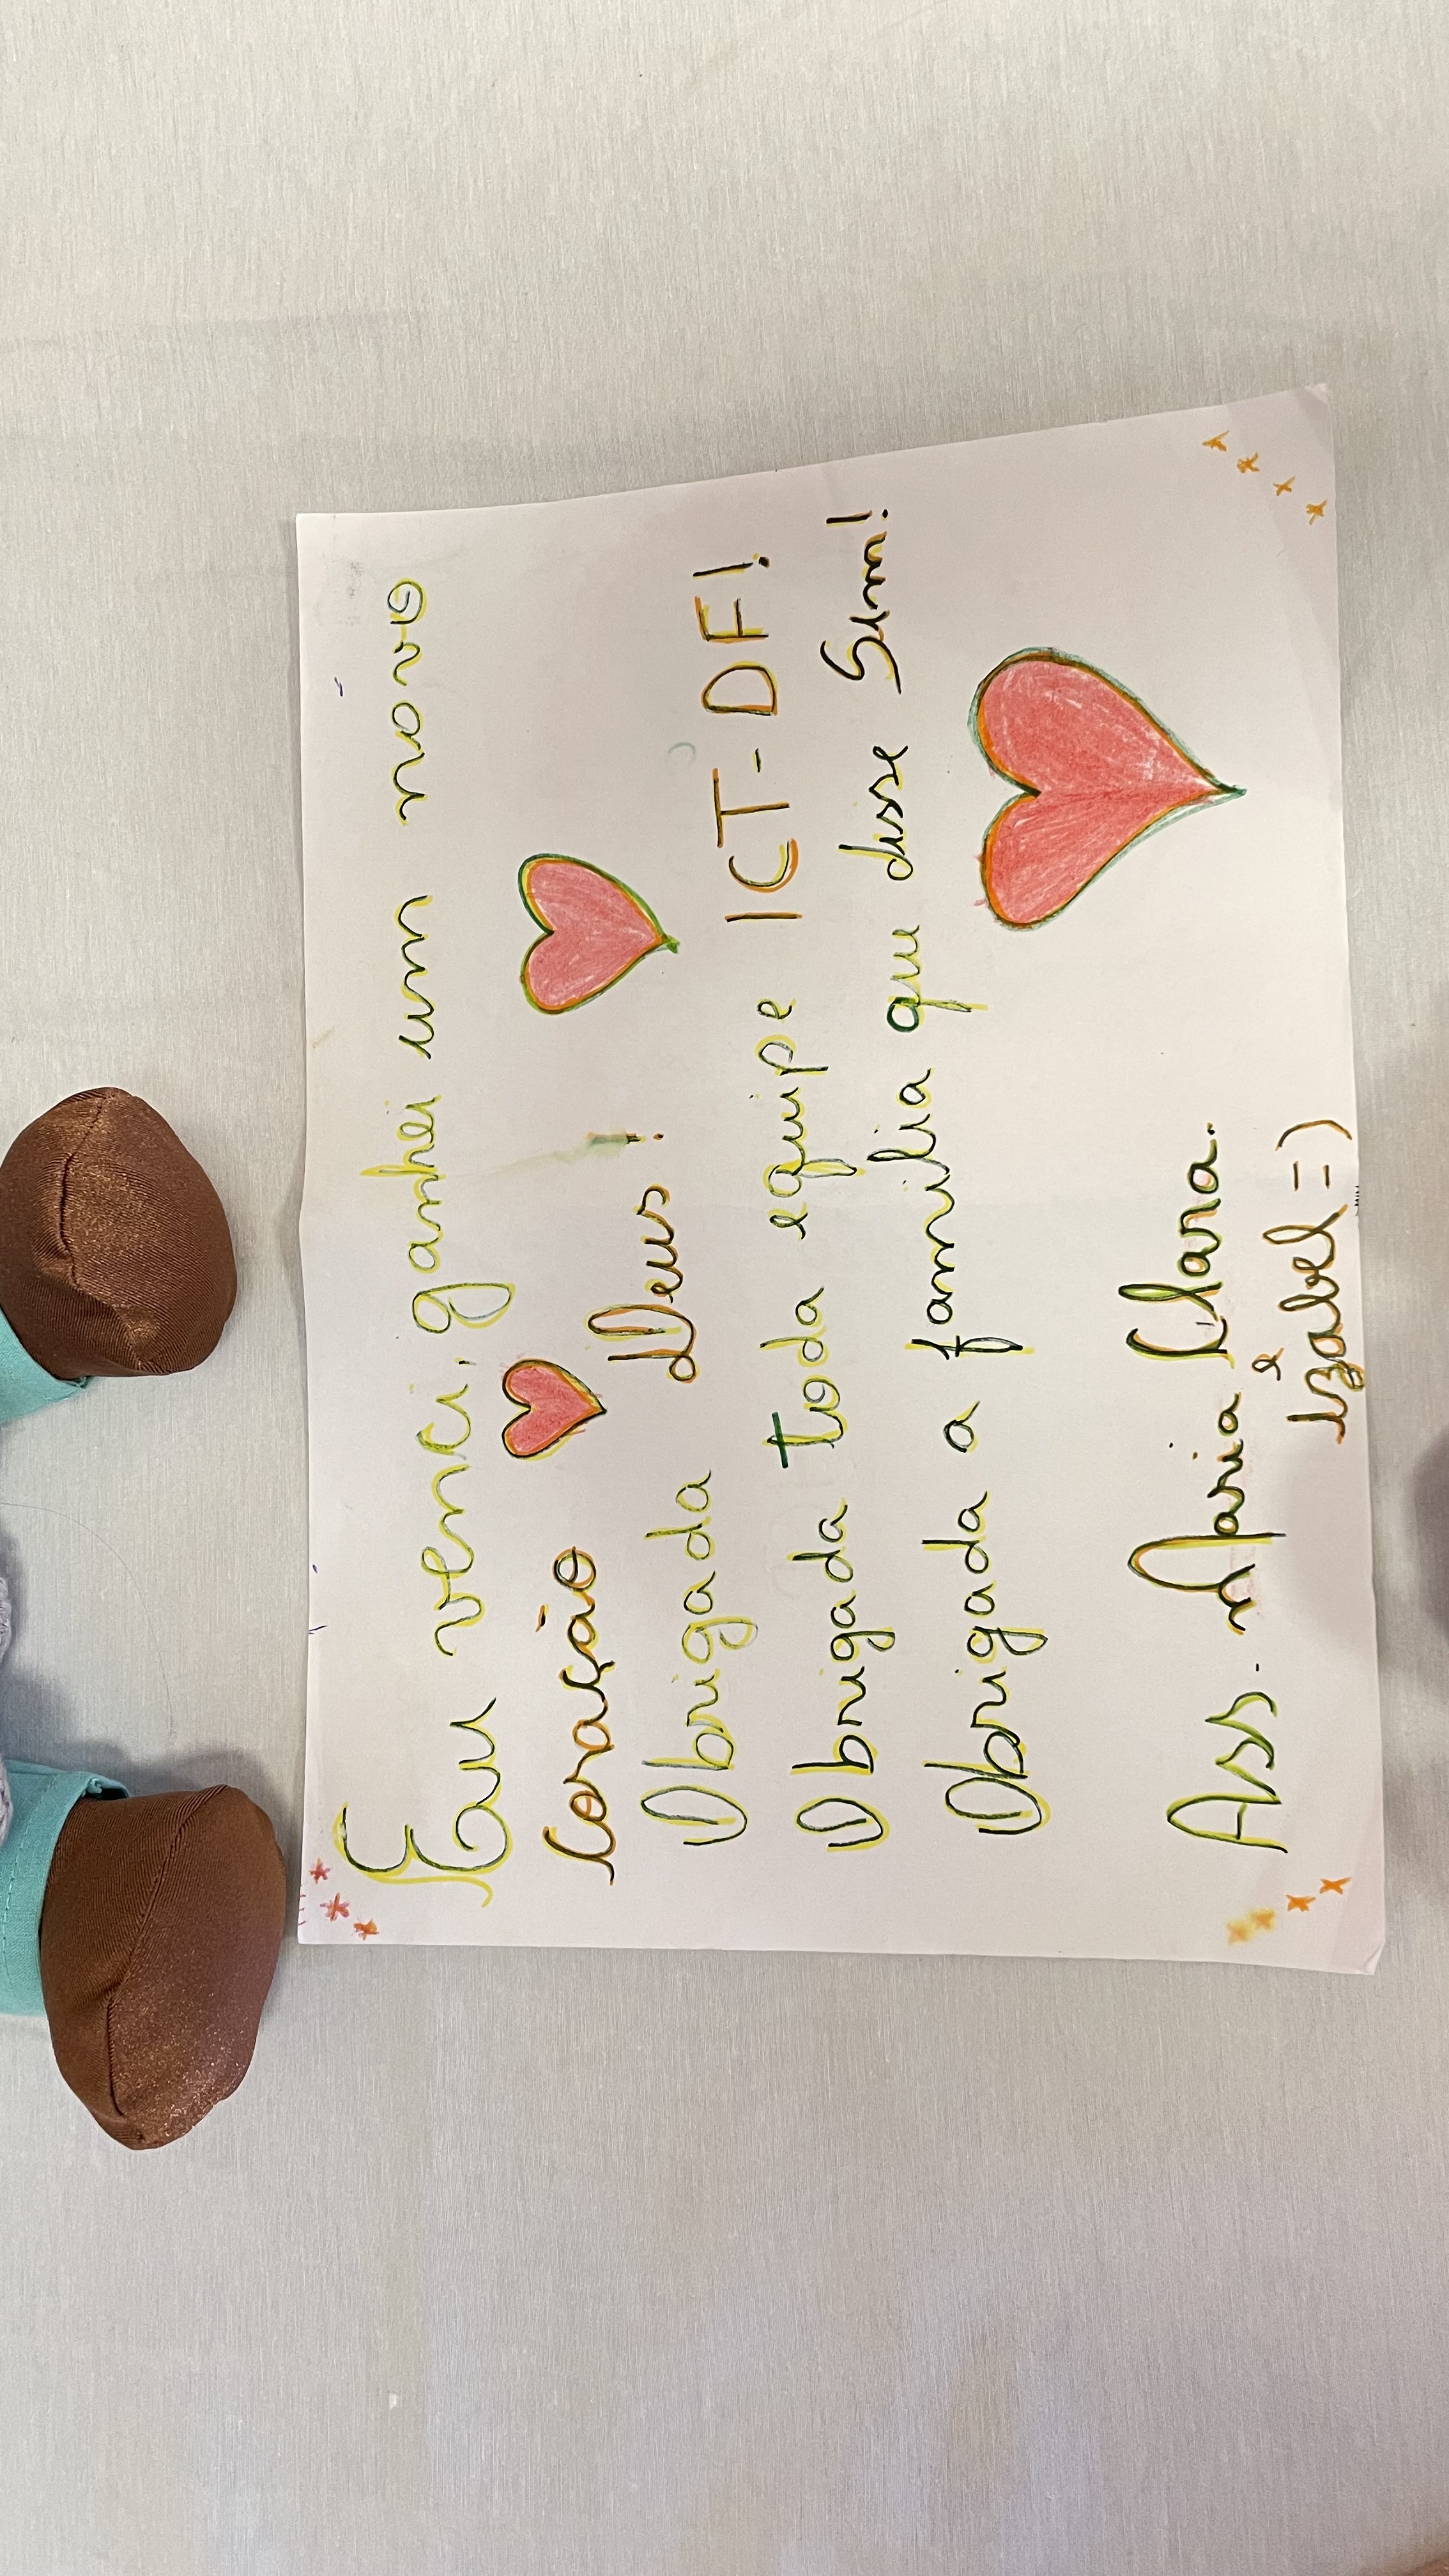 Eu venci, ganhei um novo
Coração
Obrigada Deus!
Obrigada toda equipe ICT-DF!
Obrigada a familia que disse Sim!
Ass. Maria Clara.
e
Izabel =)